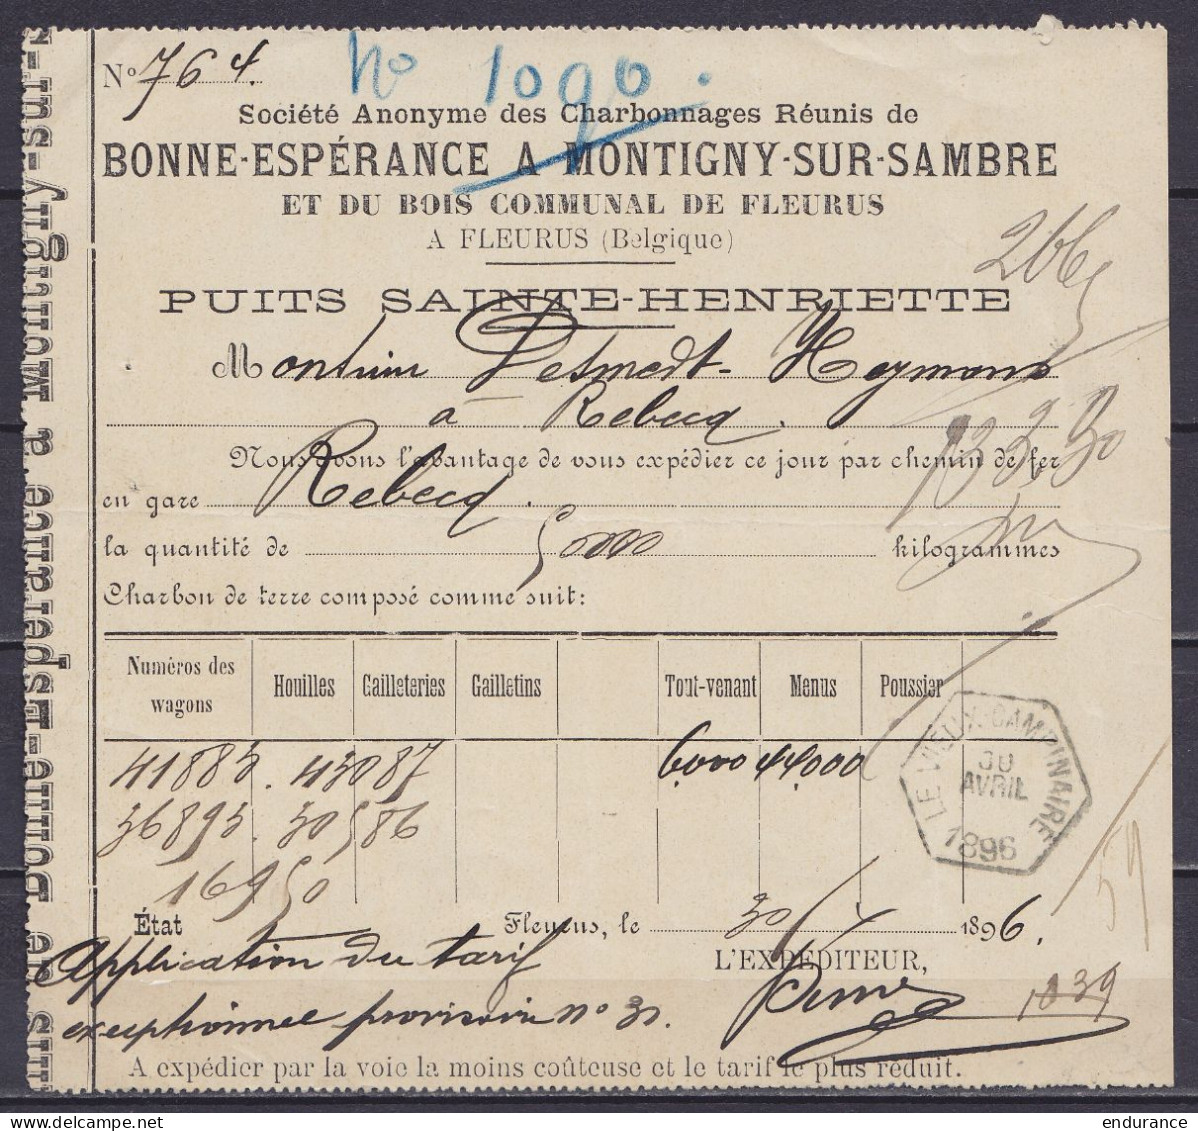 No 764.
No 1090.
Société Anonyme des Charbonnages Réunis de
BONNE-ESPÉRANCE A MONTIGNY-SUR-SAMBRE
ET DU BOIS COMMUNAL DE FLEURUS
A FLEURUS (Belgique)
PUITS SAINTE-HENRIETTE
Monsieur Desmedt-Heymans
à Rebecq.
Nous avons l'avantage de vous expédier ce jour par chemin de fer
en gare Rebecq.
la quantité de 50000 kilogrammes
Charbon de terre composé comme suit:
Numéros des wagons Houilles Gailleteries Gailletins Tout-venant Menus Poussier
41883. 43087 6000 44000
36893. 30586
16950
LE VIEUX-CAMPINAIRE
30
AVRIL
1896
59
État Fleurus, le 30/4 1896.
Application du tarif
exceptionnel provisoire no 31.
L'EXPÉDITEUR,
1039
A expédier par la voie la moins coûteuse et le tarif le plus réduit.
endurance